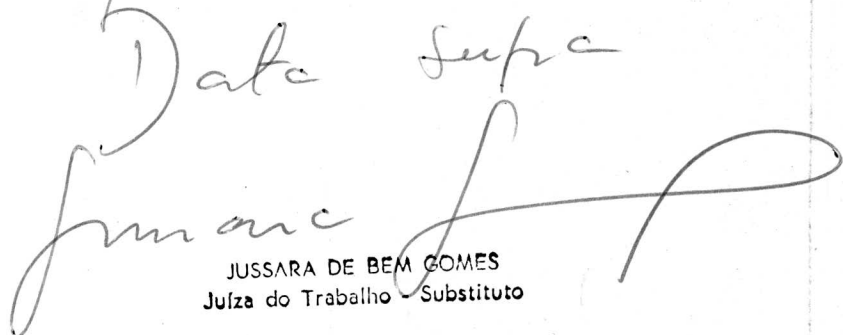 Data supra
JUSSARA DE BEM GOMES
Juíza do Trabalho - Substituto